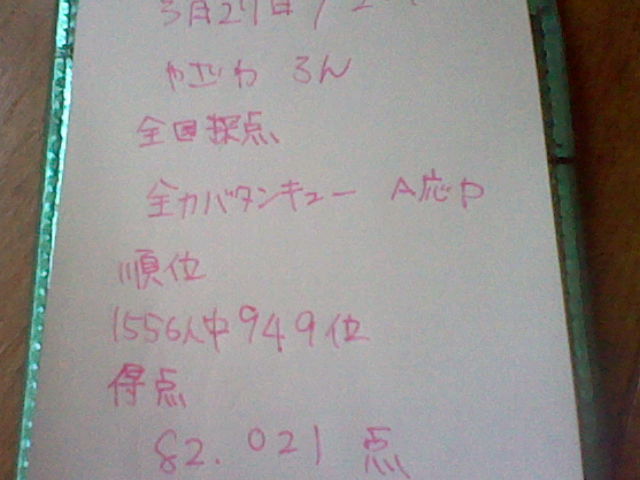 3月27日
やざわ るん
全国採点
全力バタンキュー A応P
順位
1556人中949位
得点
82.021 点